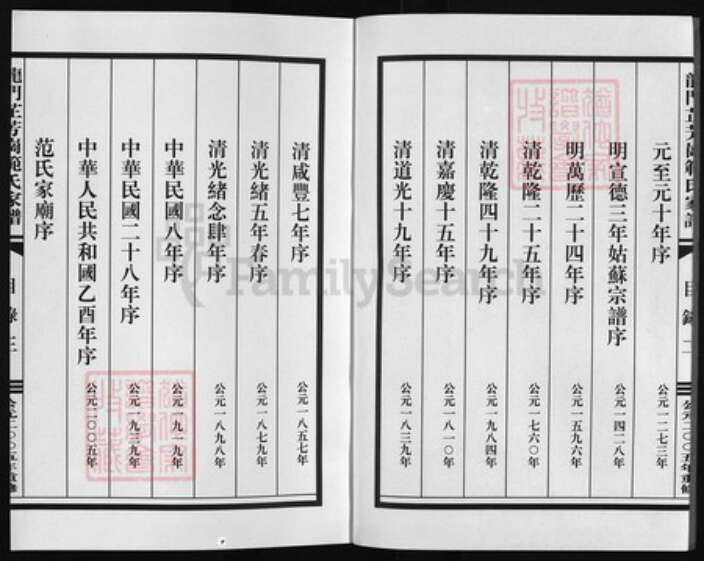 龍門芷芳園範氏家譜 目錄 二 公元二〇〇五年重修
元至元十年序 公元一二七三年
明宣德三年姑蘇宗譜序 公元一四二八年
明萬歷二十四年序 公元一五九六年
清乾隆二十五年序 公元一七六〇年
清乾隆四十九年序 公元一九八四年
清嘉慶十五年序 公元一八一〇年
清道光十九年序 公元一八三九年
清咸豐七年序 公元一八五七年
清光緒五年春序 公元一八七九年
清光緒念肆年序 公元一八九八年
中華民國八年序 公元一九一九年
中華民國二十八年序 公元一九三九年
中華人民共和國乙酉年序 公元二〇〇五年
范氏家廟序
龍門芷芳園範氏家譜 目錄 三 公元二〇〇五年重修
FamilySearch